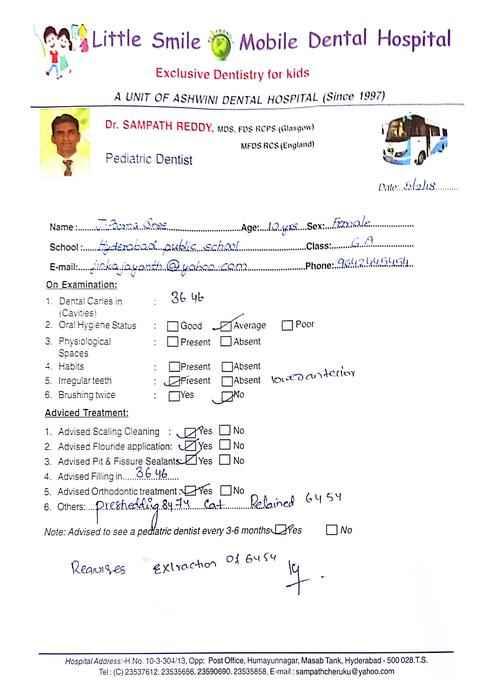 Little Smile Mobile Dental Hospital
Exclusive Dentistry for kids
A UNIT OF ASHWINI DENTAL HOSPITAL (Since 1997)
Dr. SAMPATH REDDY, MDS, FDS RCPS (Glasgow)
MFDS RCS (England)
Pediatric Dentist
Date: 5/2/18
Name: Age: 10 yrs Sex: Female
School: Hyderabad public school Class:
E-mail: jinkajayanth@yahoo.com Phone: 9642445454
On Examination:
1. Dental Caries in : 36 46
(Cavities)
2. Oral Hygiene Status : Good Average Poor
3. Physiological : Present Absent
Spaces
4. Habits : Present Absent
5. Irregular teeth : Present Absent anterior
6. Brushing twice : Yes No
Adviced Treatment:
1. Advised Scaling Cleaning : Yes No
2. Advised Flouride application: Yes No
3. Advised Pit & Fissure Sealants: Yes No
4. Advised Filling in 36 46
5. Advised Orthodontic treatment: Yes No
6. Others: preshedding 84 74 Retained 64 54
Note: Advised to see a pediatric dentist every 3-6 months Yes No
Requires extraction of 64 54
Hospital Address:-H.No. 10-3-304/13, Opp: Post Office, Humayunnagar, Masab Tank, Hyderabad - 500 028.T.S.
Tel: (C) 23537612, 23535686, 23590695, 23535858, E-mail: sampathcheruku@yahoo.com